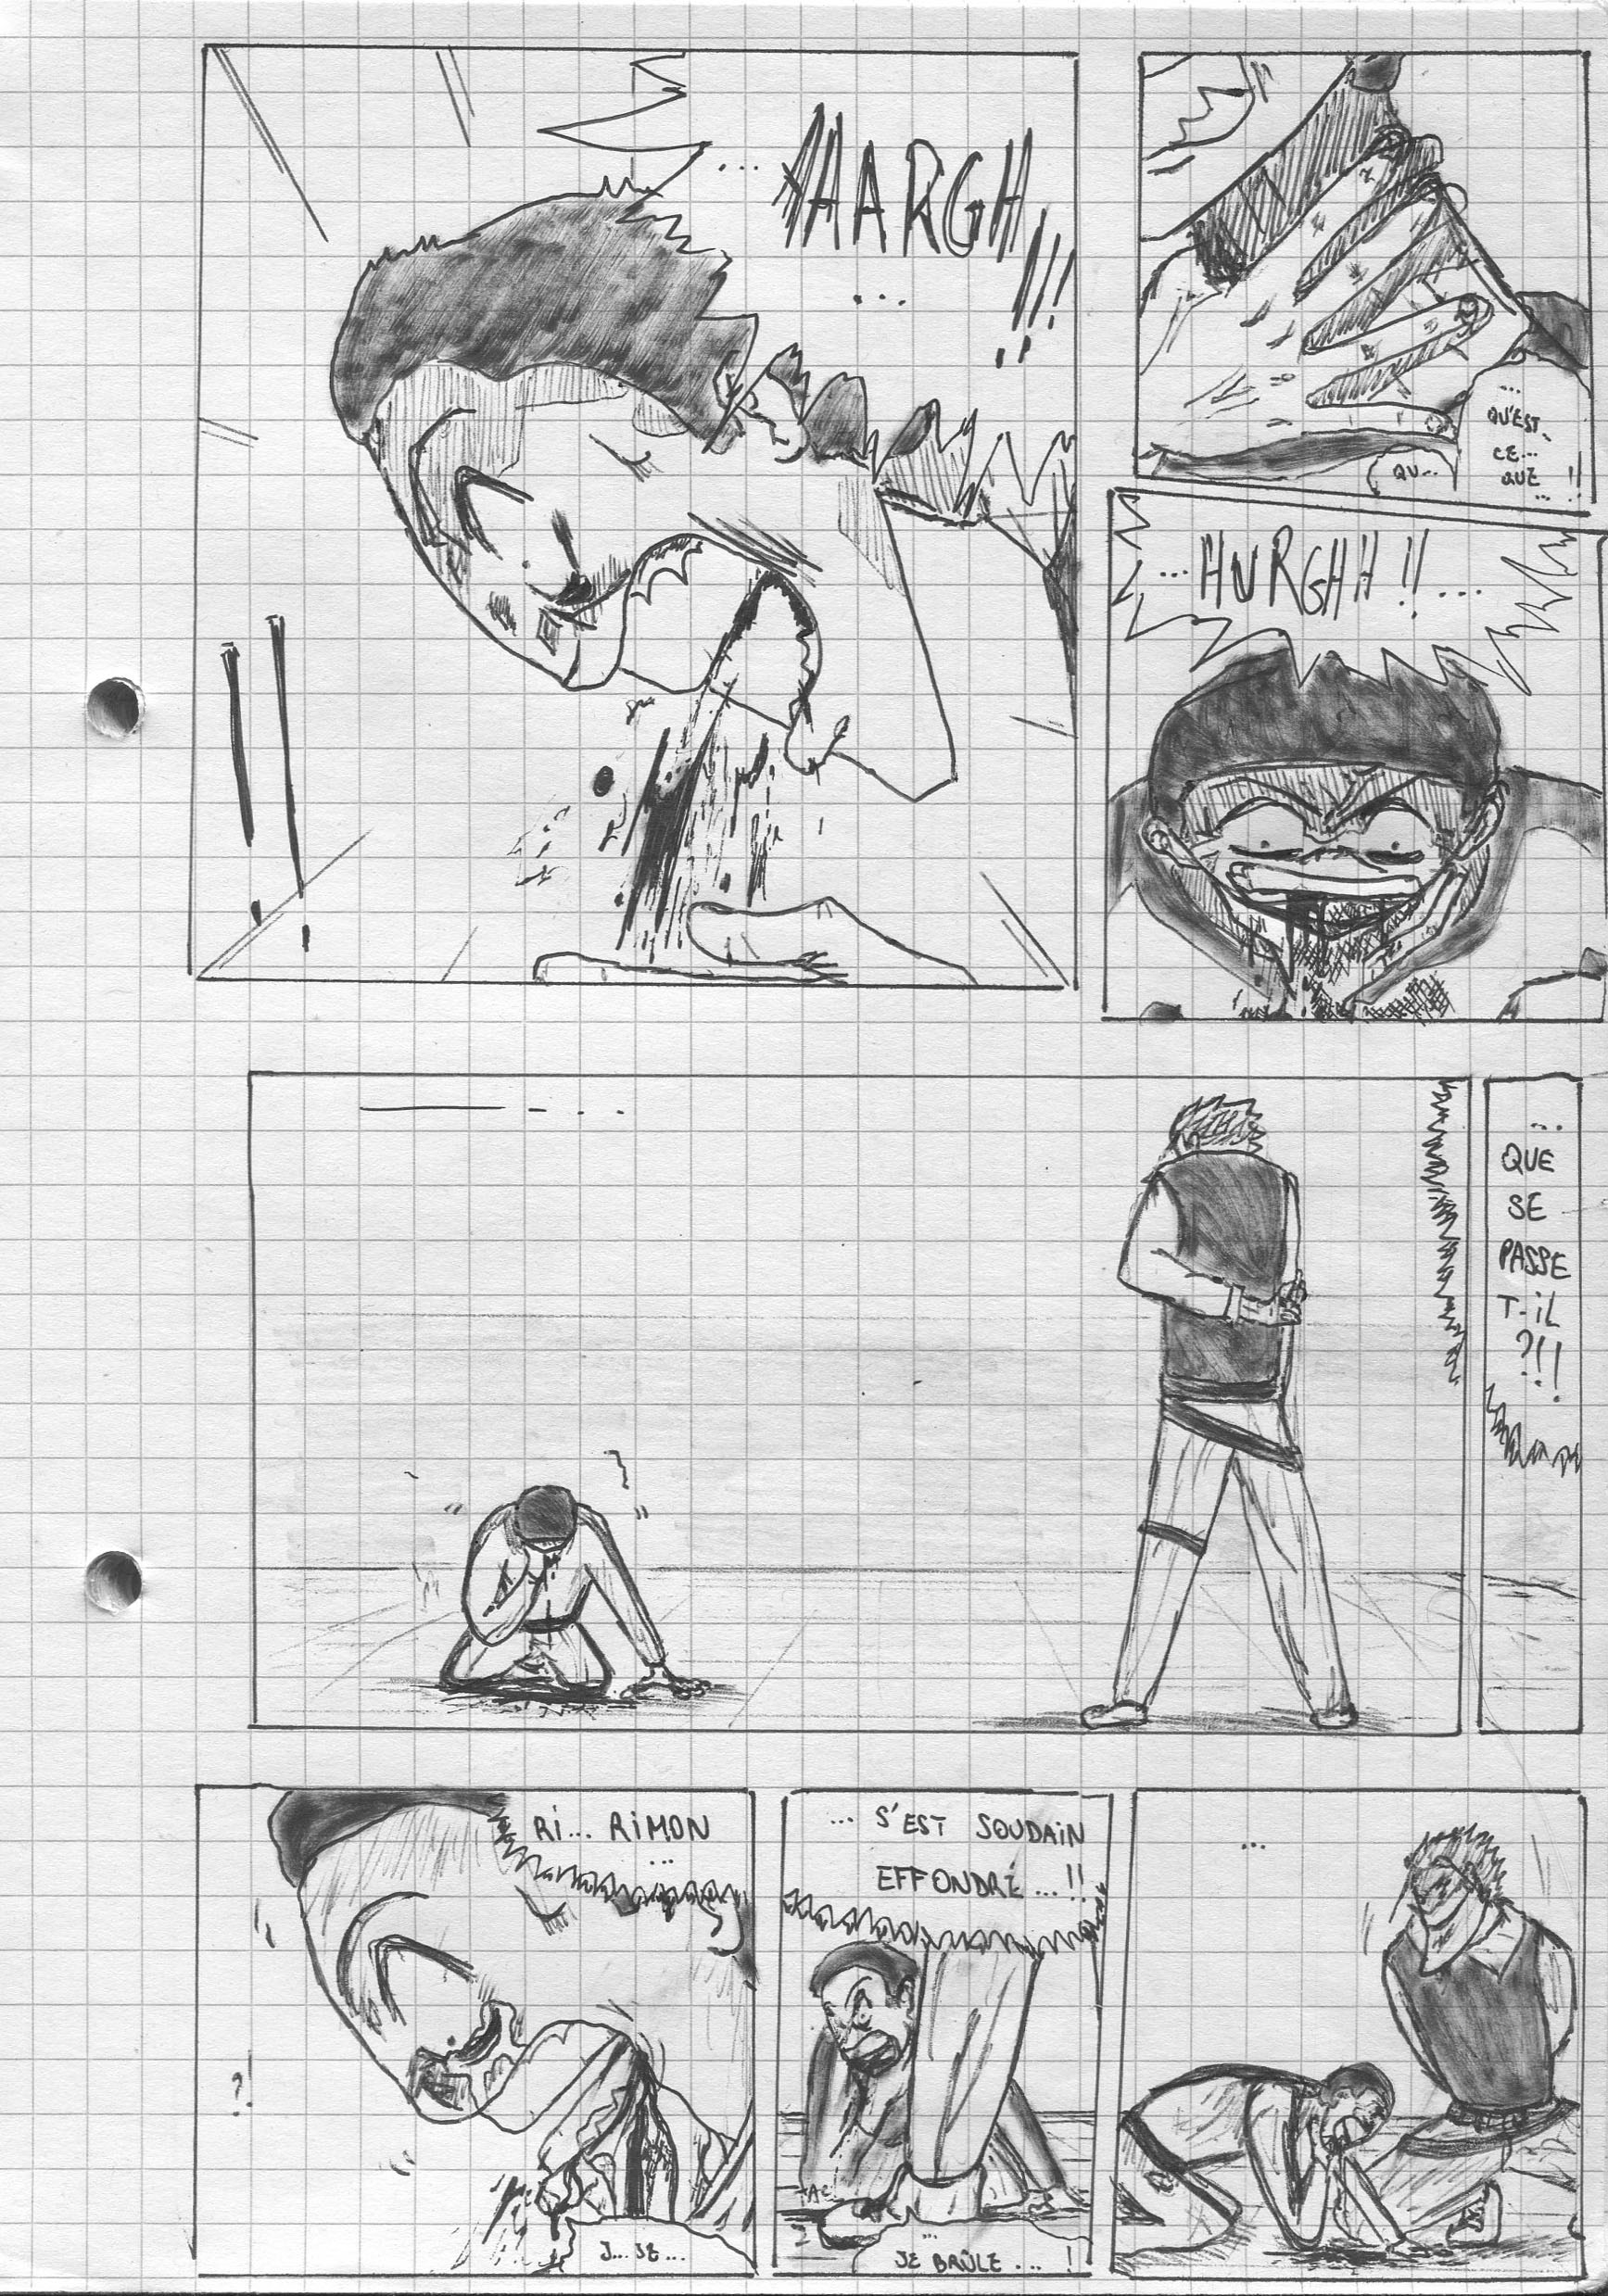 ... AAARGH !!!
...
QU...
...
QU'EST-
CE...
QUE
... !!
...HURGHH !!...
...
QUE
SE
PASSE
T-iL
?!!
Ri... RiMON
...
?!
J... JE...
... S'EST SOUDAiN
EFFONDRÉ ... !!
TAC
...
JE BRÛLE ... !
...